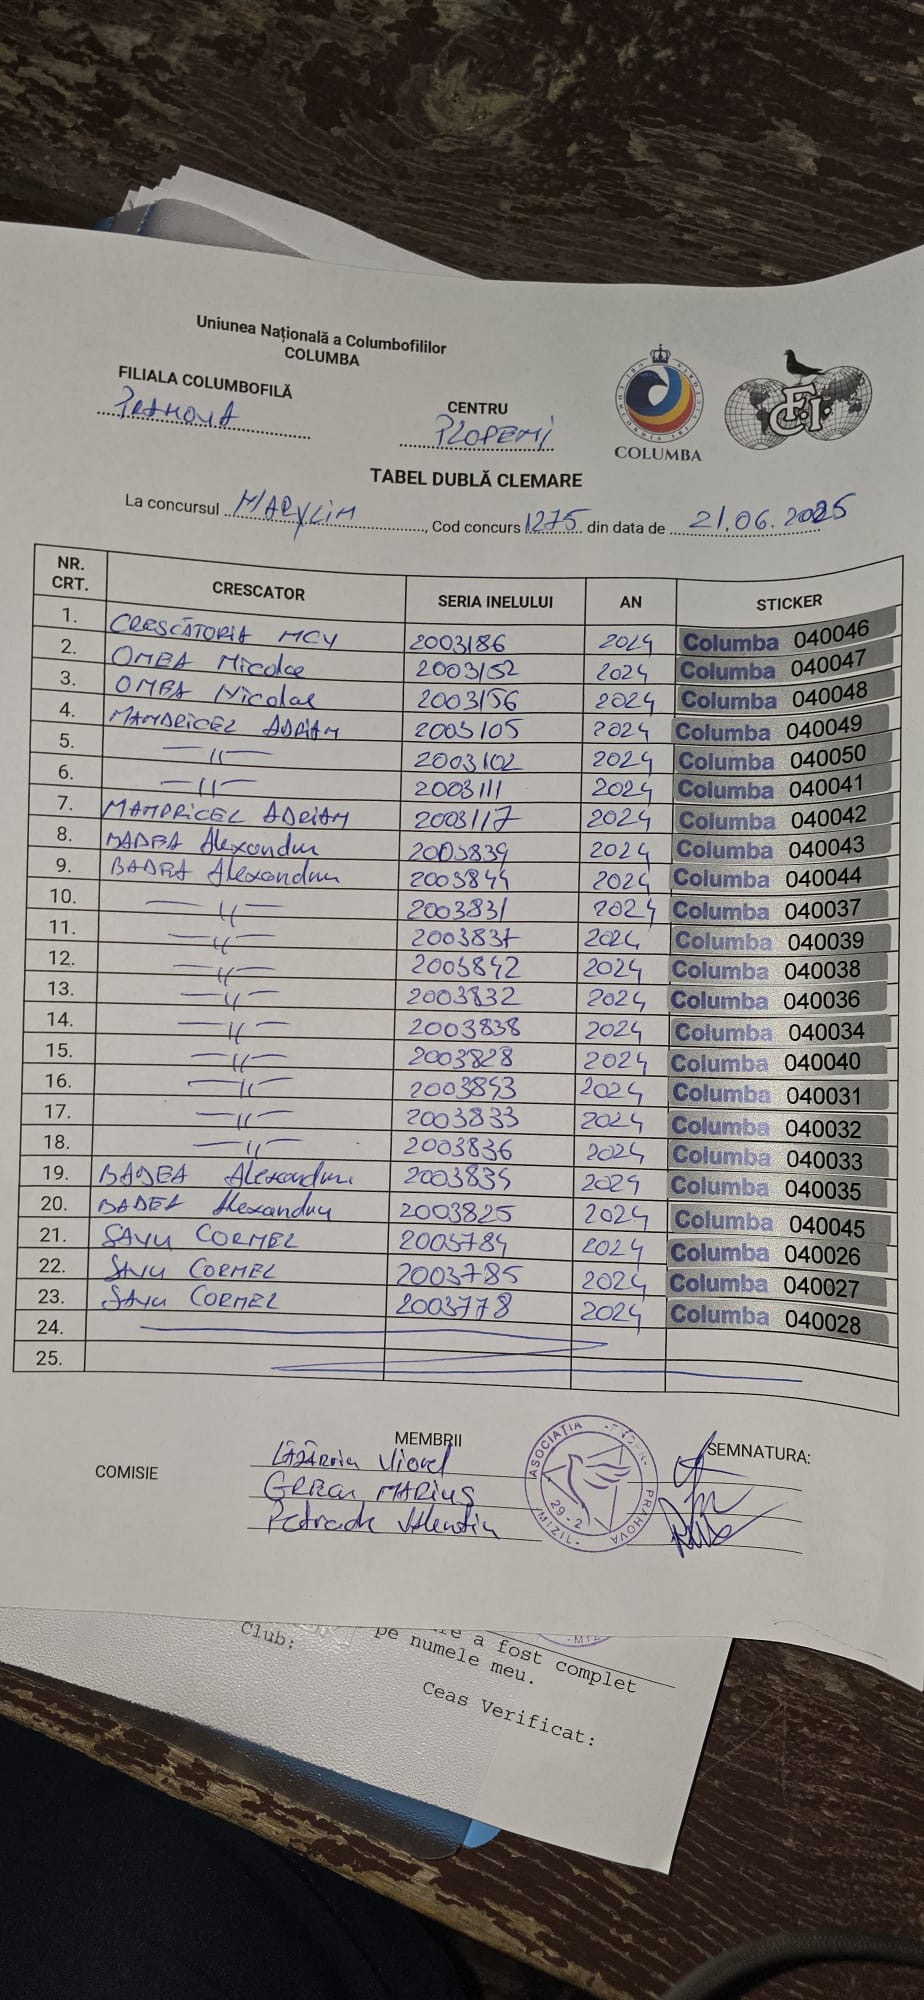 Uniunea Națională a Columbofililor
COLUMBA
FILIALA COLUMBOFILĂ
PRAHOVA
CENTRU
PLOPENI
COLUMBA
F.C.I.
TABEL DUBLĂ CLEMARE
La concursul MARYLIM, Cod concurs 1275 din data de 21.06.2025
NR. CRT. CRESCATOR SERIA INELULUI AN STICKER
1. CRESCĂTORIA MCY 2003186 2024 Columba 040046
2. OMBA Nicolae 2003152 2024 Columba 040047
3. OMBA Nicolae 2003156 2024 Columba 040048
4. MANDRICEL ADRIAN 2003105 2024 Columba 040049
5. —〃— 2003102 2024 Columba 040050
6. —〃— 2003111 2024 Columba 040041
7. MANDRICEL ADRIAN 2003117 2024 Columba 040042
8. BADEA Alexandru 2003839 2024 Columba 040043
9. BADEA Alexandru 2003844 2024 Columba 040044
10. —〃— 2003831 2024 Columba 040037
11. —〃— 2003837 2024 Columba 040039
12. —〃— 2003842 2024 Columba 040038
13. —〃— 2003832 2024 Columba 040036
14. —〃— 2003838 2024 Columba 040034
15. —〃— 2003828 2024 Columba 040040
16. —〃— 2003843 2024 Columba 040031
17. —〃— 2003833 2024 Columba 040032
18. —〃— 2003836 2024 Columba 040033
19. BADEA Alexandru 2003834 2024 Columba 040035
20. BADEA Alexandru 2003825 2024 Columba 040045
21. SAVU CORNEL 2003784 2024 Columba 040026
22. SAVU CORNEL 2003785 2024 Columba 040027
23. SAVU CORNEL 2003778 2024 Columba 040028
24.
25.
COMISIE
MEMBRII
SEMNATURA:
Viorel
MARIUS
Petrache Valentin
ASOCIAȚIA PRAHOVA MIZIL 29-2
a fost complet
Club: pe numele meu.
Ceas Verificat: